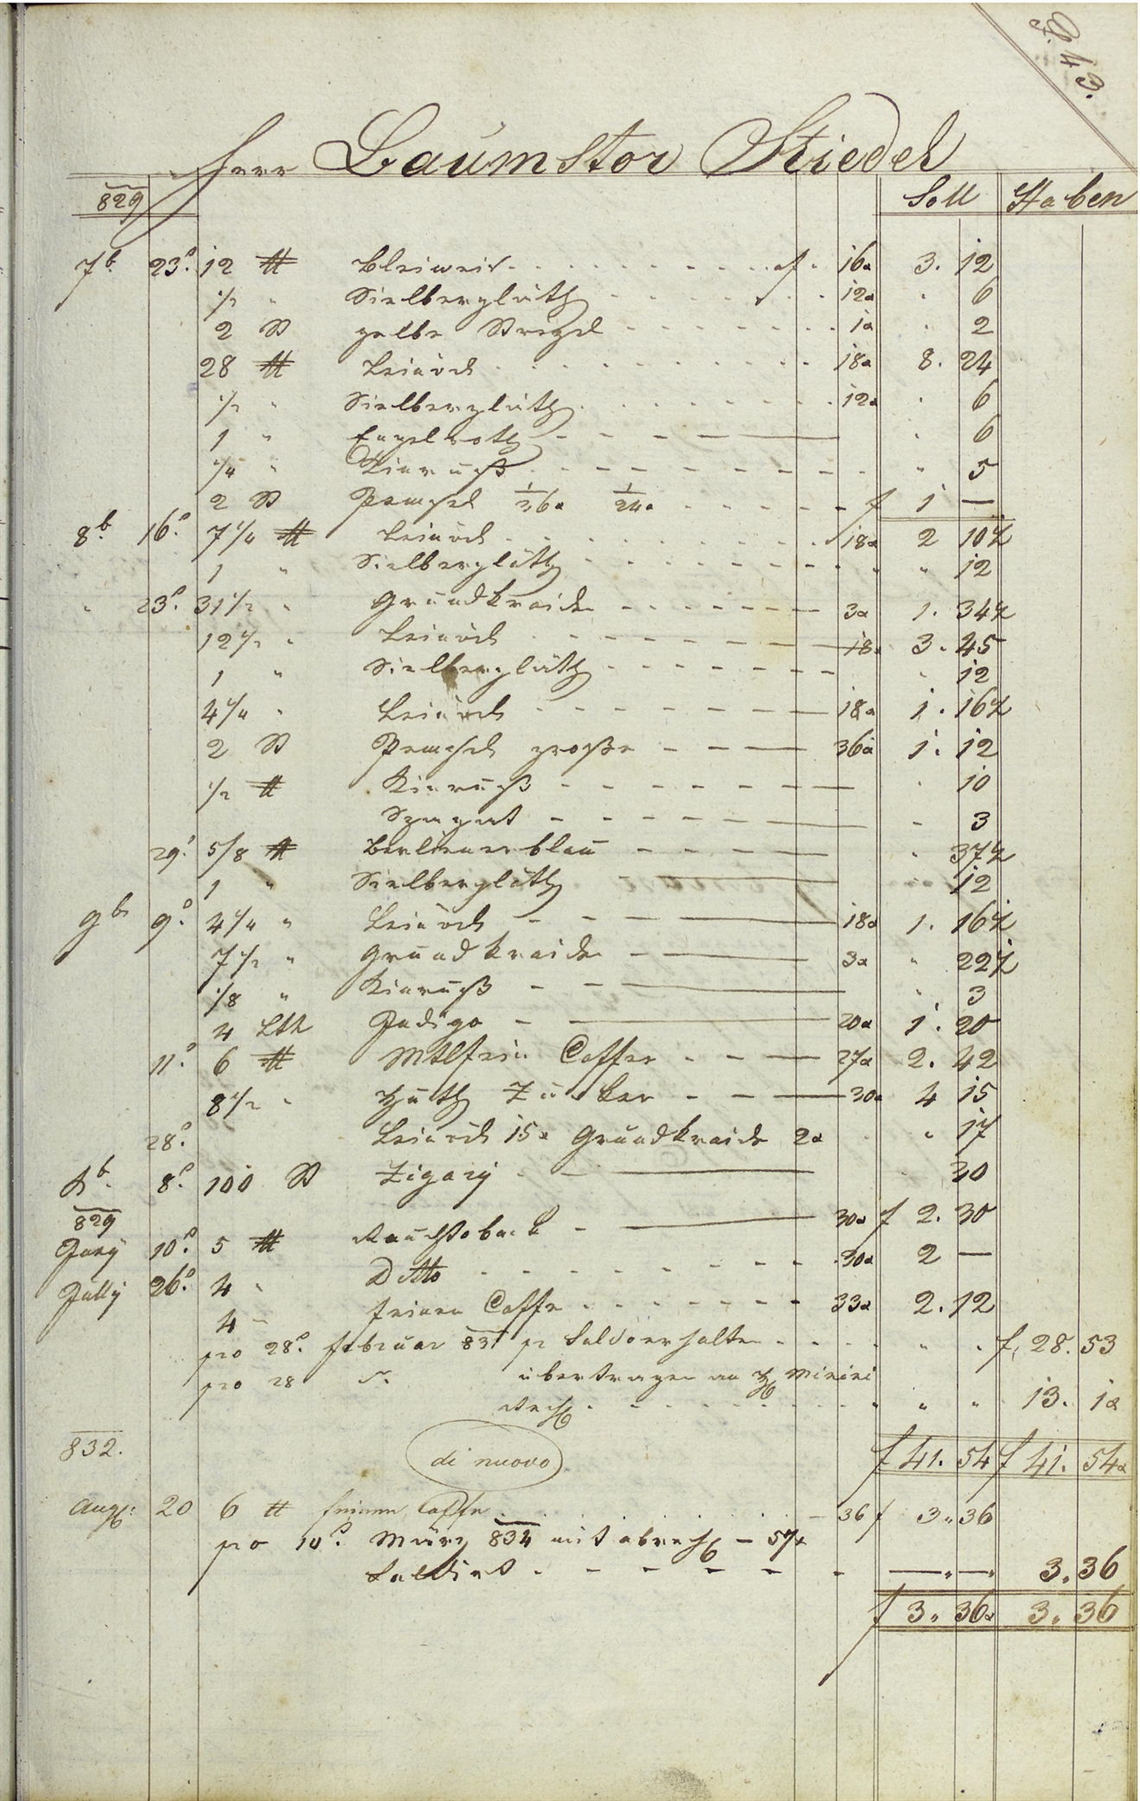 P. 43.
Herr Baumstor Stiedel
829 Soll Haben
7b. 23. 12 ℔ Bleiweis f. 16x 3. 12
1/2 " Sielbergläth 12x " 6
2 St gelbe 1x " 2
28 ℔ Leinöel 18x 8. 24
1/2 " Sielbergläth 12x " 6
1 " Engelroth " 6
1/4 " Kienruß " 5
2 St Pemsel 1/36x 1/24x f 1 —
8b. 16. 7 1/4 ℔ Leinöel 18x 2 10½
1 " Sielbergläth " " 12
" 23. 31 1/2 " Grundkraide 3x 1. 34½
12 1/2 " Leinöel 18x 3. 45
1 " Sielbergläth " 12
4 1/4 " Leinöel 18x 1. 16½
2 St Pemsel große 36x 1. 12
1/2 ℔ Kienruß " 10
Spagat " 3
29. 5/8 ℔ Berlienerblau " 37½
1 " Sielbergläth " 12
9br 9. 4 1/4 " Leinöel 18x 1. 16½
7 1/2 " Grundkraide 3x " 22½
1/8 " Kienruß " 3
4 Lth Indigo 20x 1. 20
11. 6 ℔ Mtlfein Caffee 27x 2. 42
8 1/2 " Huth Zucker 30x 4 15
28. Leinöel 15x Grundkraide 2x " 17
Xb. 8. 100 St Zigary 30
829
Juny 10. 5 ℔ Rauchtoback 30x f 2. 30
Jully 26. 4 " Ditto 30x 2 —
4 " feinen Caffe 33x 2. 12
pro 28. Februar 831 pr Saldo erhalten " " f. 28. 53
pro 28 übertragen an H Minini
Rech " " 13. 1x
f 41. 54 f 41. 54x
832. di nuovo
Aug: 20 6 ℔ feinen Caffe 36 f 3. 36
pro 10. März 834 mit abrech — 57x
Saldirt —.—. 3. 36
f 3. 36x 3. 36